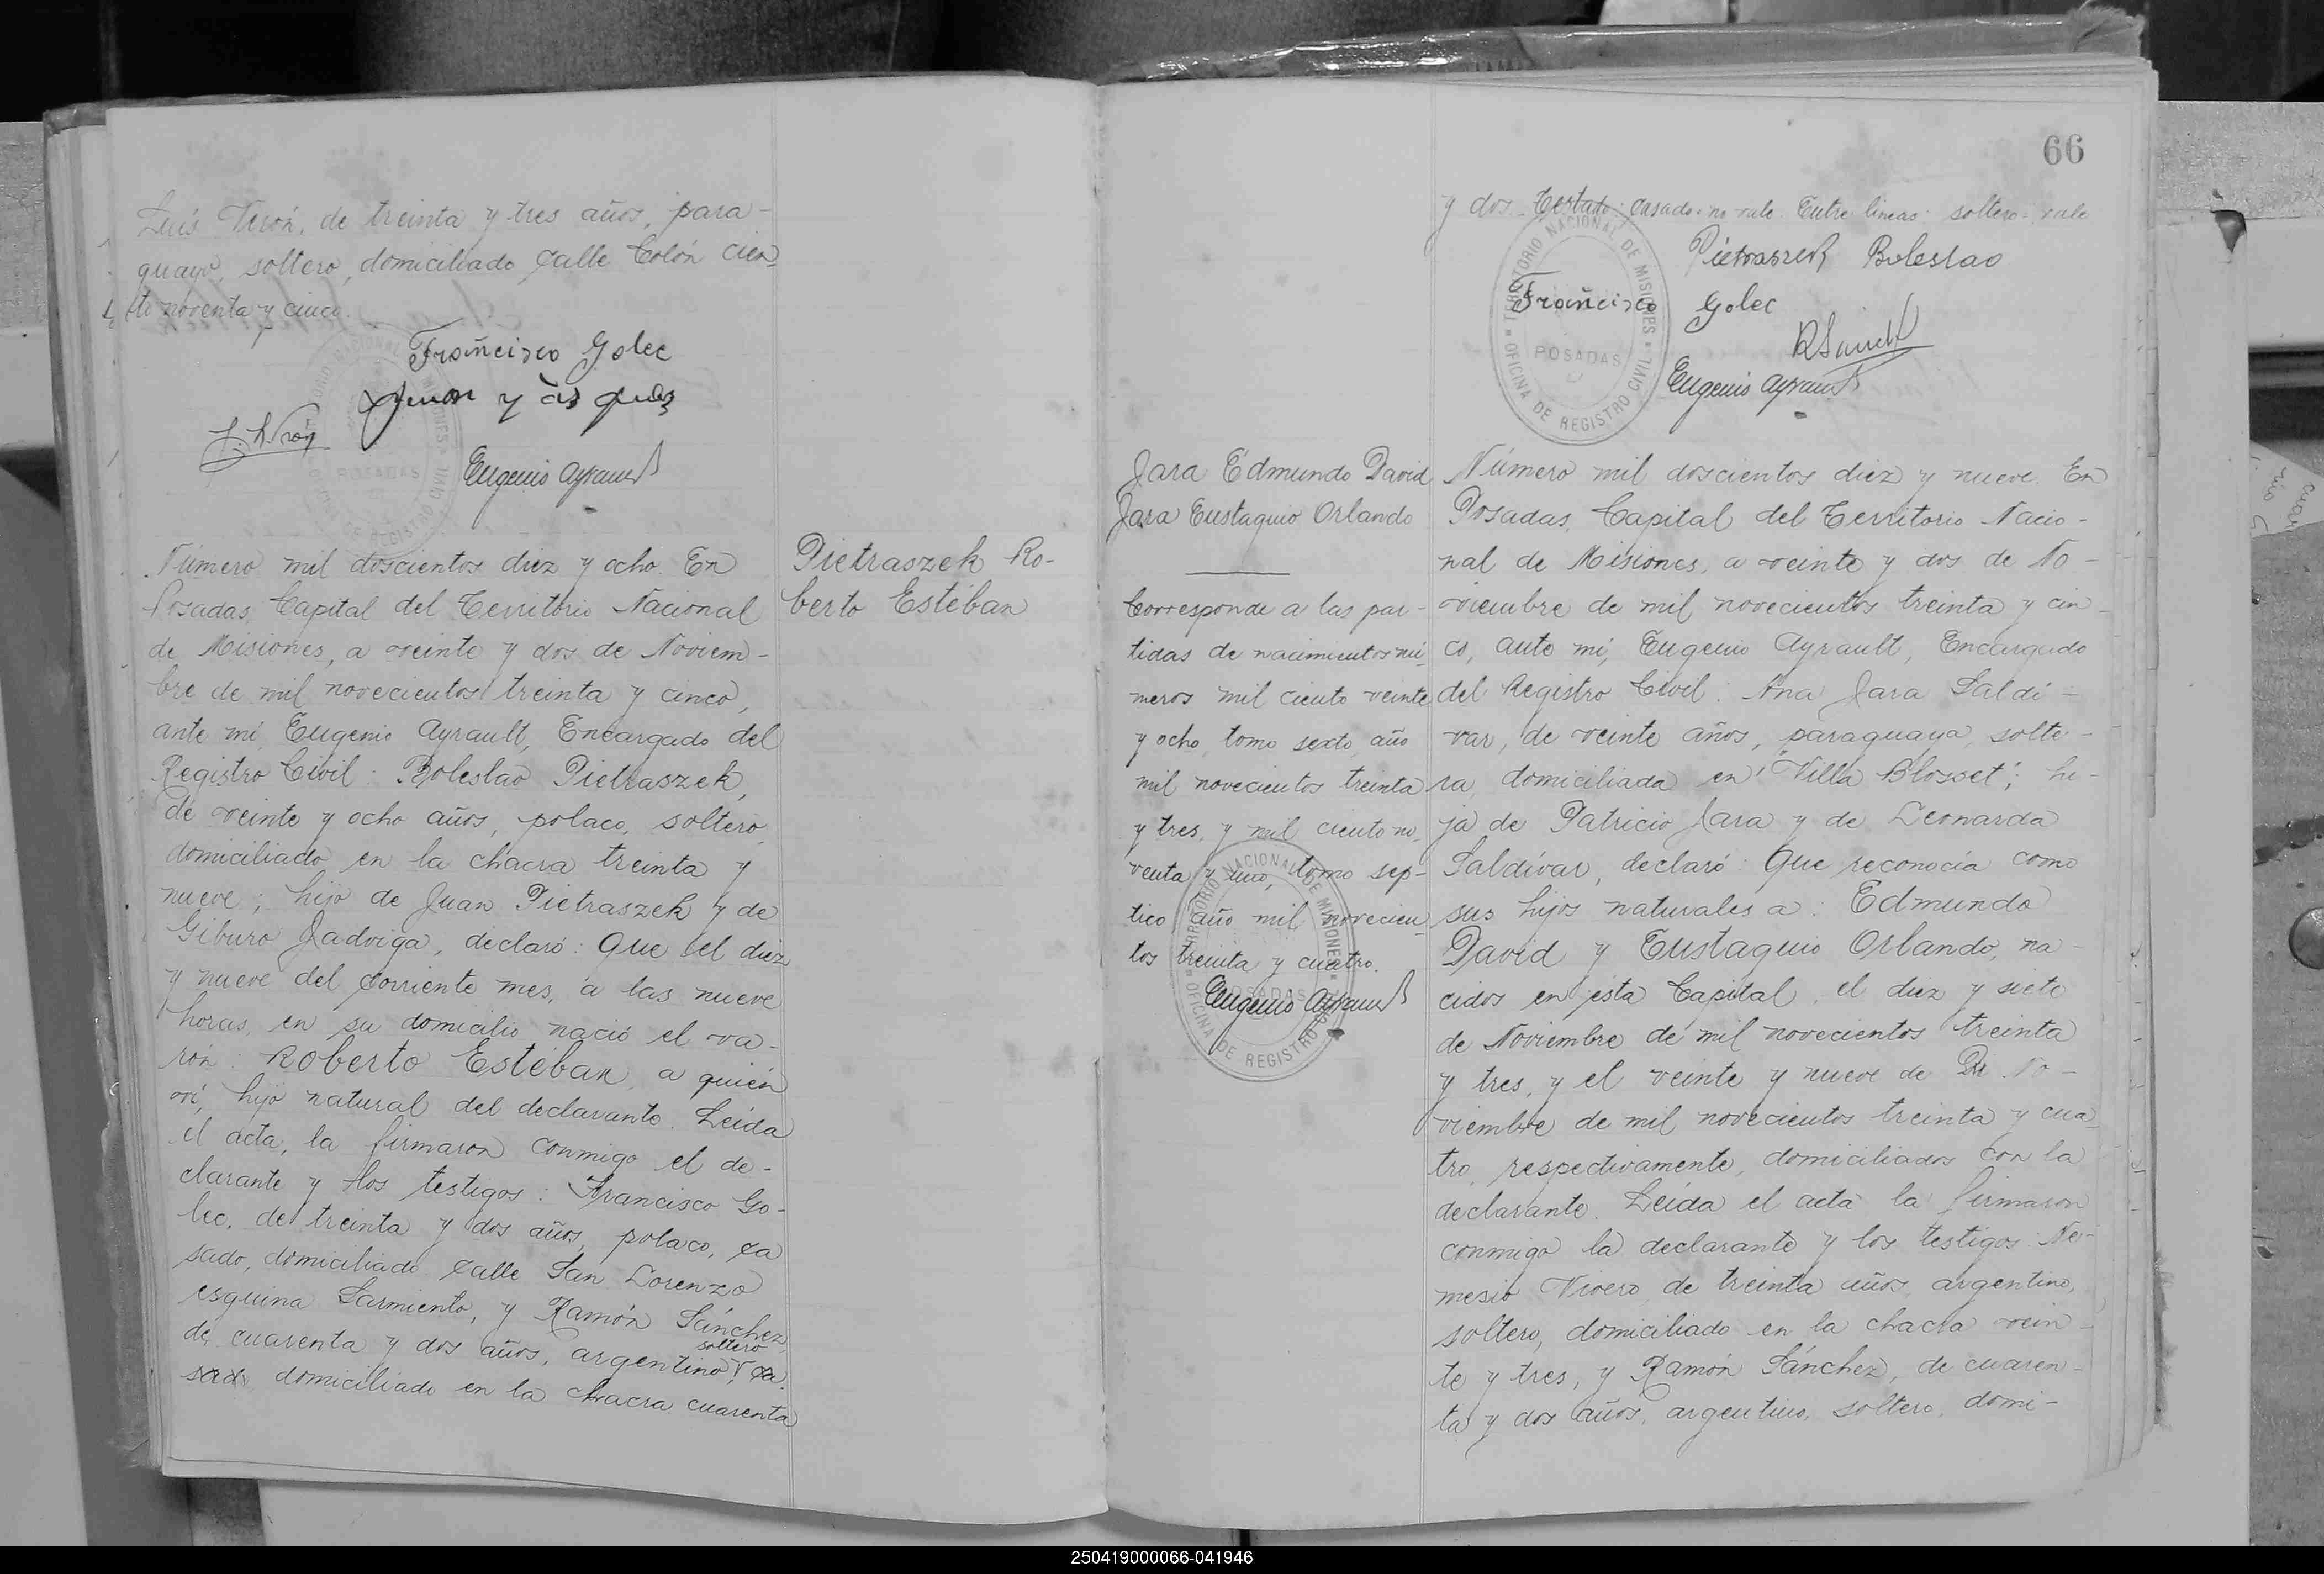 Luis Verón, de treinta y tres años, para-
guayo, soltero, domiciliado calle Colón cien
to noventa y cinco.
Francisco Golec
Eugenio Ayrault
Número mil doscientos diez y ocho. En
Posadas, Capital del Territorio Nacional
de Misiones, a veinte y dos de Noviem-
bre de mil novecientos treinta y cinco,
ante mi, Eugenio Ayrault, Encargado del
Registro Civil: Boleslao Pietraszek,
de veinte y ocho años, polaco, soltero,
domiciliado en la chacra treinta y
nueve; hijo de Juan Pietraszek y de
Giburo Jadviga, declaró: Que el diez
y nueve del corriente mes, a las nueve
horas, en su domicilio nació el va-
rón: Roberto Estéban, a quién
ví, hijo natural del declarante. Leída
el acta, la firmaron conmigo el de-
clarante y los testigos: Francisco Go-
lec, de treinta y dos años, polaco, ca
sado, domiciliado calle San Lorenzo
esquina Sarmiento, y Ramón Sánchez
soltero
de cuarenta y dos años, argentino, ca
sado domiciliado en la chacra cuarenta
Pietraszek Ro-
berto Estéban
66
y dos. Testado: casado: no vale. Entre lineas: soltero: vale
Pietraszek Boleslao
Francisco Golec
R Sánchez
Eugenio Ayrault
TERRITORIO NACIONAL DE MISIONES
POSADAS
OFICINA DE REGISTRO CIVIL
Jara Edmundo David
Jara Eustaquio Orlando
Corresponde a las par-
tidas de nacimientos nú
meros mil ciento veinte
y ocho, tomo sexto, año
mil novecientos treinta
y tres, y mil ciento no
venta y uno, tomo sep-
tico, año mil novecien
tos treinta y cuatro.
Eugenio Ayrault
TERRITORIO NACIONAL DE MISIONES
POSADAS
OFICINA DE REGISTRO
Número mil doscientos diez y nueve. En
Posadas, Capital del Territorio Nacio-
nal de Misiones, a veinte y dos de No-
viembre de mil novecientos treinta y cin-
co, ante mi, Eugenio Ayrault, Encargado
del Registro Civil: Ana Jara Saldi-
var, de veinte años, paraguaya, solte-
ra, domiciliada en "Villa Blosset"; hi-
ja de Patricio Jara y de Leonarda
Saldívar, declaró: Que reconocía como
sus hijos naturales a: Edmundo
David y Eustaquio Orlando, na-
cidos en ésta Capital, el diez y siete
de Noviembre de mil novecientos treinta
y tres, y el veinte y nueve de Di No-
viembre de mil novecientos treinta y cua
tro, respectivamente, domiciliados con la
declarante. Leída el acta la firmaron
conmigo la declarante y los testigos: Ne-
mesio Vivero, de treinta años, argentino,
soltero, domiciliado en la chacra vein-
te y tres, y Ramón Sánchez, de cuaren-
ta y dos años, argentino, soltero, domi-
250419000066-041946